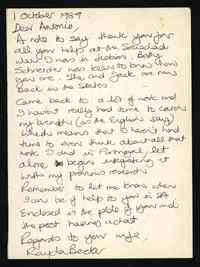 1 October 1989
Dear Antonio,
A note to say thank you for
all your help at the Sociedad
when I was in Lisbon. Betty
Schneider was keen to know how
you are. She and Jack are now
back in the States.
Came back to a lot of work and
I haven't really had time to catch
my breath (as the English say)
which means that I haven't had
time to even think about all that
work I did in Portugal, let
alone begin integrating it
with my previous research.
Remember to let me know when
I can be of help to you in
Enclosed is the photo of you and
the poet having a chat.
Regards to your wife
Kayla Becker